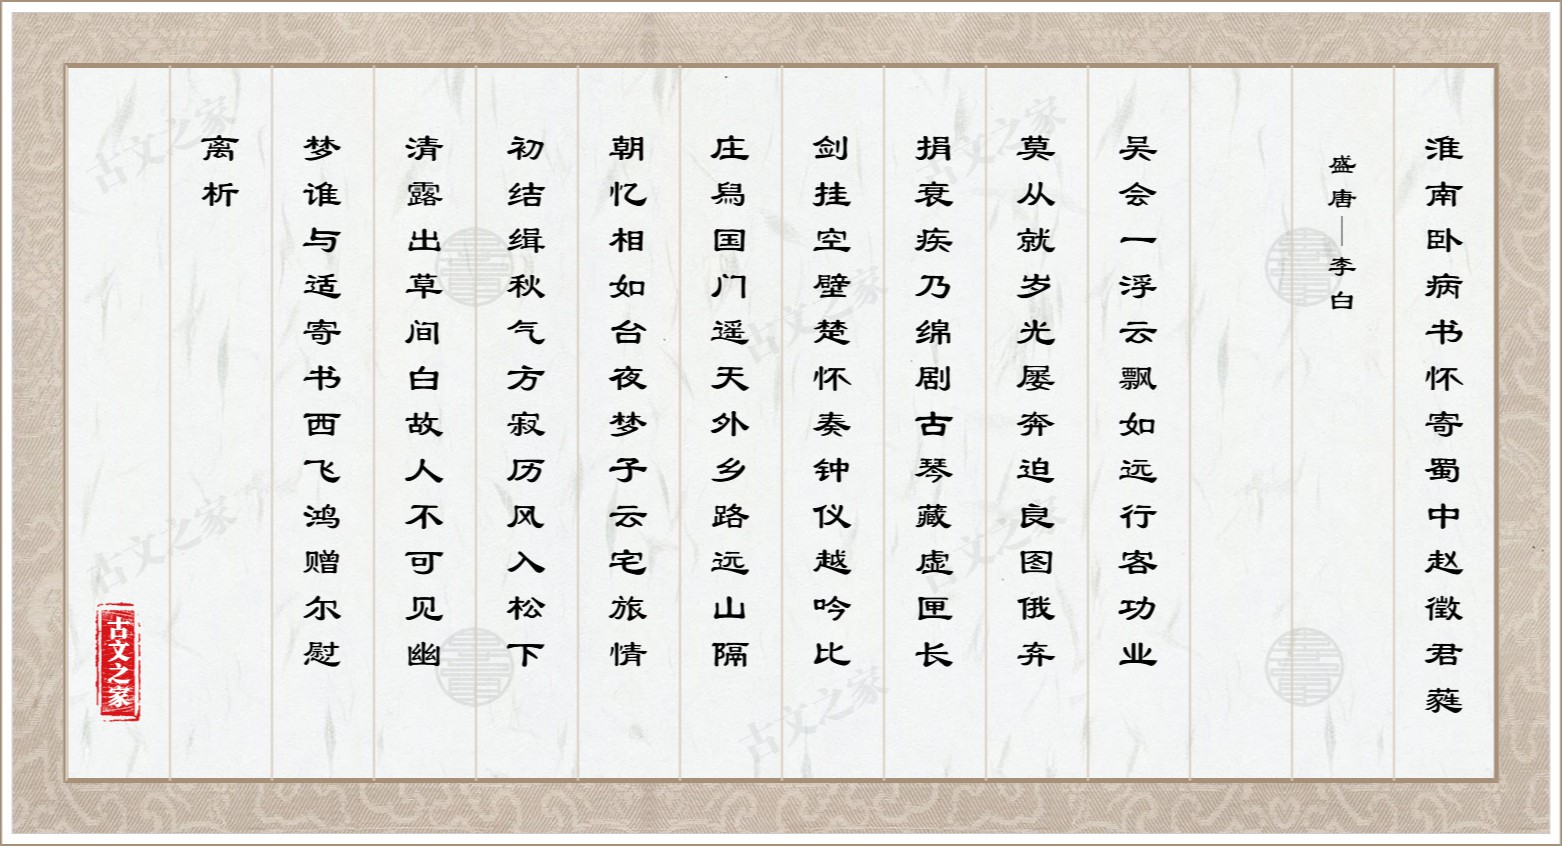 淮南卧病书怀寄蜀中赵徵君蕤
盛唐—李白
吴会一浮云飘如远行客功业
莫从就岁光屡奔迫良图俄弃
捐衰疾乃绵剧古琴藏虚匣长
剑挂空壁楚怀奏钟仪越吟比
庄舄国门遥天外乡路远山隔
朝忆相如台夜梦子云宅旅情
初结缉秋气方寂历风入松下
清露出草间白故人不可见幽
梦谁与适寄书西飞鸿赠尔慰
离析
古文之家
古文之家
古文之家
古文之家
古文之家
古文之家
古文之家